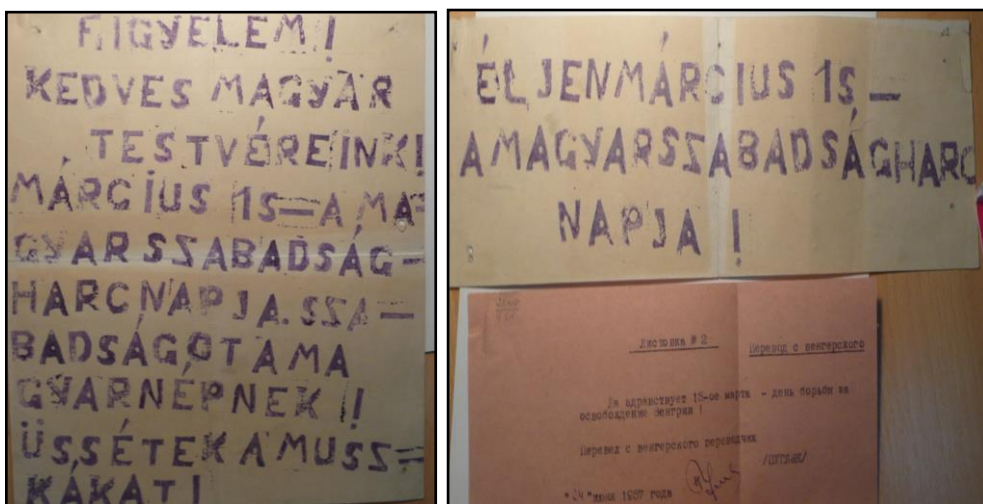 FIGYELEM!
KEDVES MAGYAR
TESTVÉREINK!
MÁRCIUS 15—A MA=
GYAR SZABADSÁG—
HARC NAPJA. SZA—
BADSÁGOT A MA
GYAR NÉPNEK!!
ÜSSÉTEK A MUSZ=
KÁKAT!
ÉLJEN MÁRCIUS 15—
A MAGYAR SZABADSÁGHARC
NAPJA!
Листовка № 2
Перевод с венгерского
Да здравствует 15-ое марта - день борьбы за
освобождение Венгрии!
Перевел с венгерского переводчик
"24" июня 1957 года